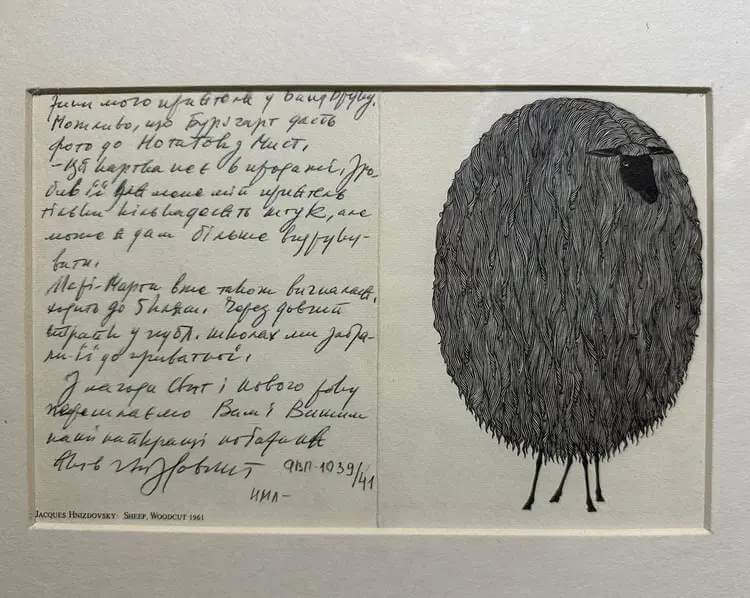 мого приятеля у
Можливо, що Бурггарт дасть
фото до Нотаток з Мист.
- Ця картка не є в продажі, зро-
бив її для мене мій приятель
тільки кільканадцять штук, але
може я дам більше видруку-
вати.
Марі-Марта вже також
ходить до школи. Через довгий
у публ. школах ми забра-
ли її до приватної.
З нагоди Свят і Нового року
пересилаємо Вам і Вашим
наші найкращі побажання
Яків Гніздовський ЯВП-1039/41
JACQUES HNIZDOVSKY SHEEP, WOODCUT 1961